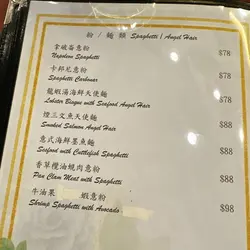 粉 / 麵 類 Spaghetti / Angel Hair
拿破崙意粉 $78
Napoleon Spaghetti
卡邦尼意粉 $78
Spaghetti Carbonar
龍蝦湯海鮮天使麵 $78
Lobster Bisque with Seafood Angel Hair
煙三文魚天使麵 $88
Smoked Salmon Angel Hair
意式海鮮墨魚麵 $88
Seafood with Cuttlefish Spaghetti
香草欖油蜆肉意粉 $88
Pan Clam Meat with Spaghetti
牛油果 蝦意粉 $98
Shrimp Spaghetti with Avocado